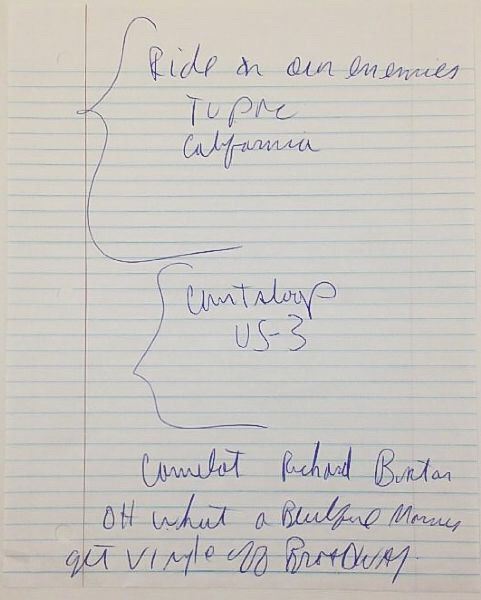 Ride on our enemies
Tupac
California
Cantaloop
US-3
Camelot Richard Burton
OH what a Beautiful Mornin
get vinyle off BROADWAY.